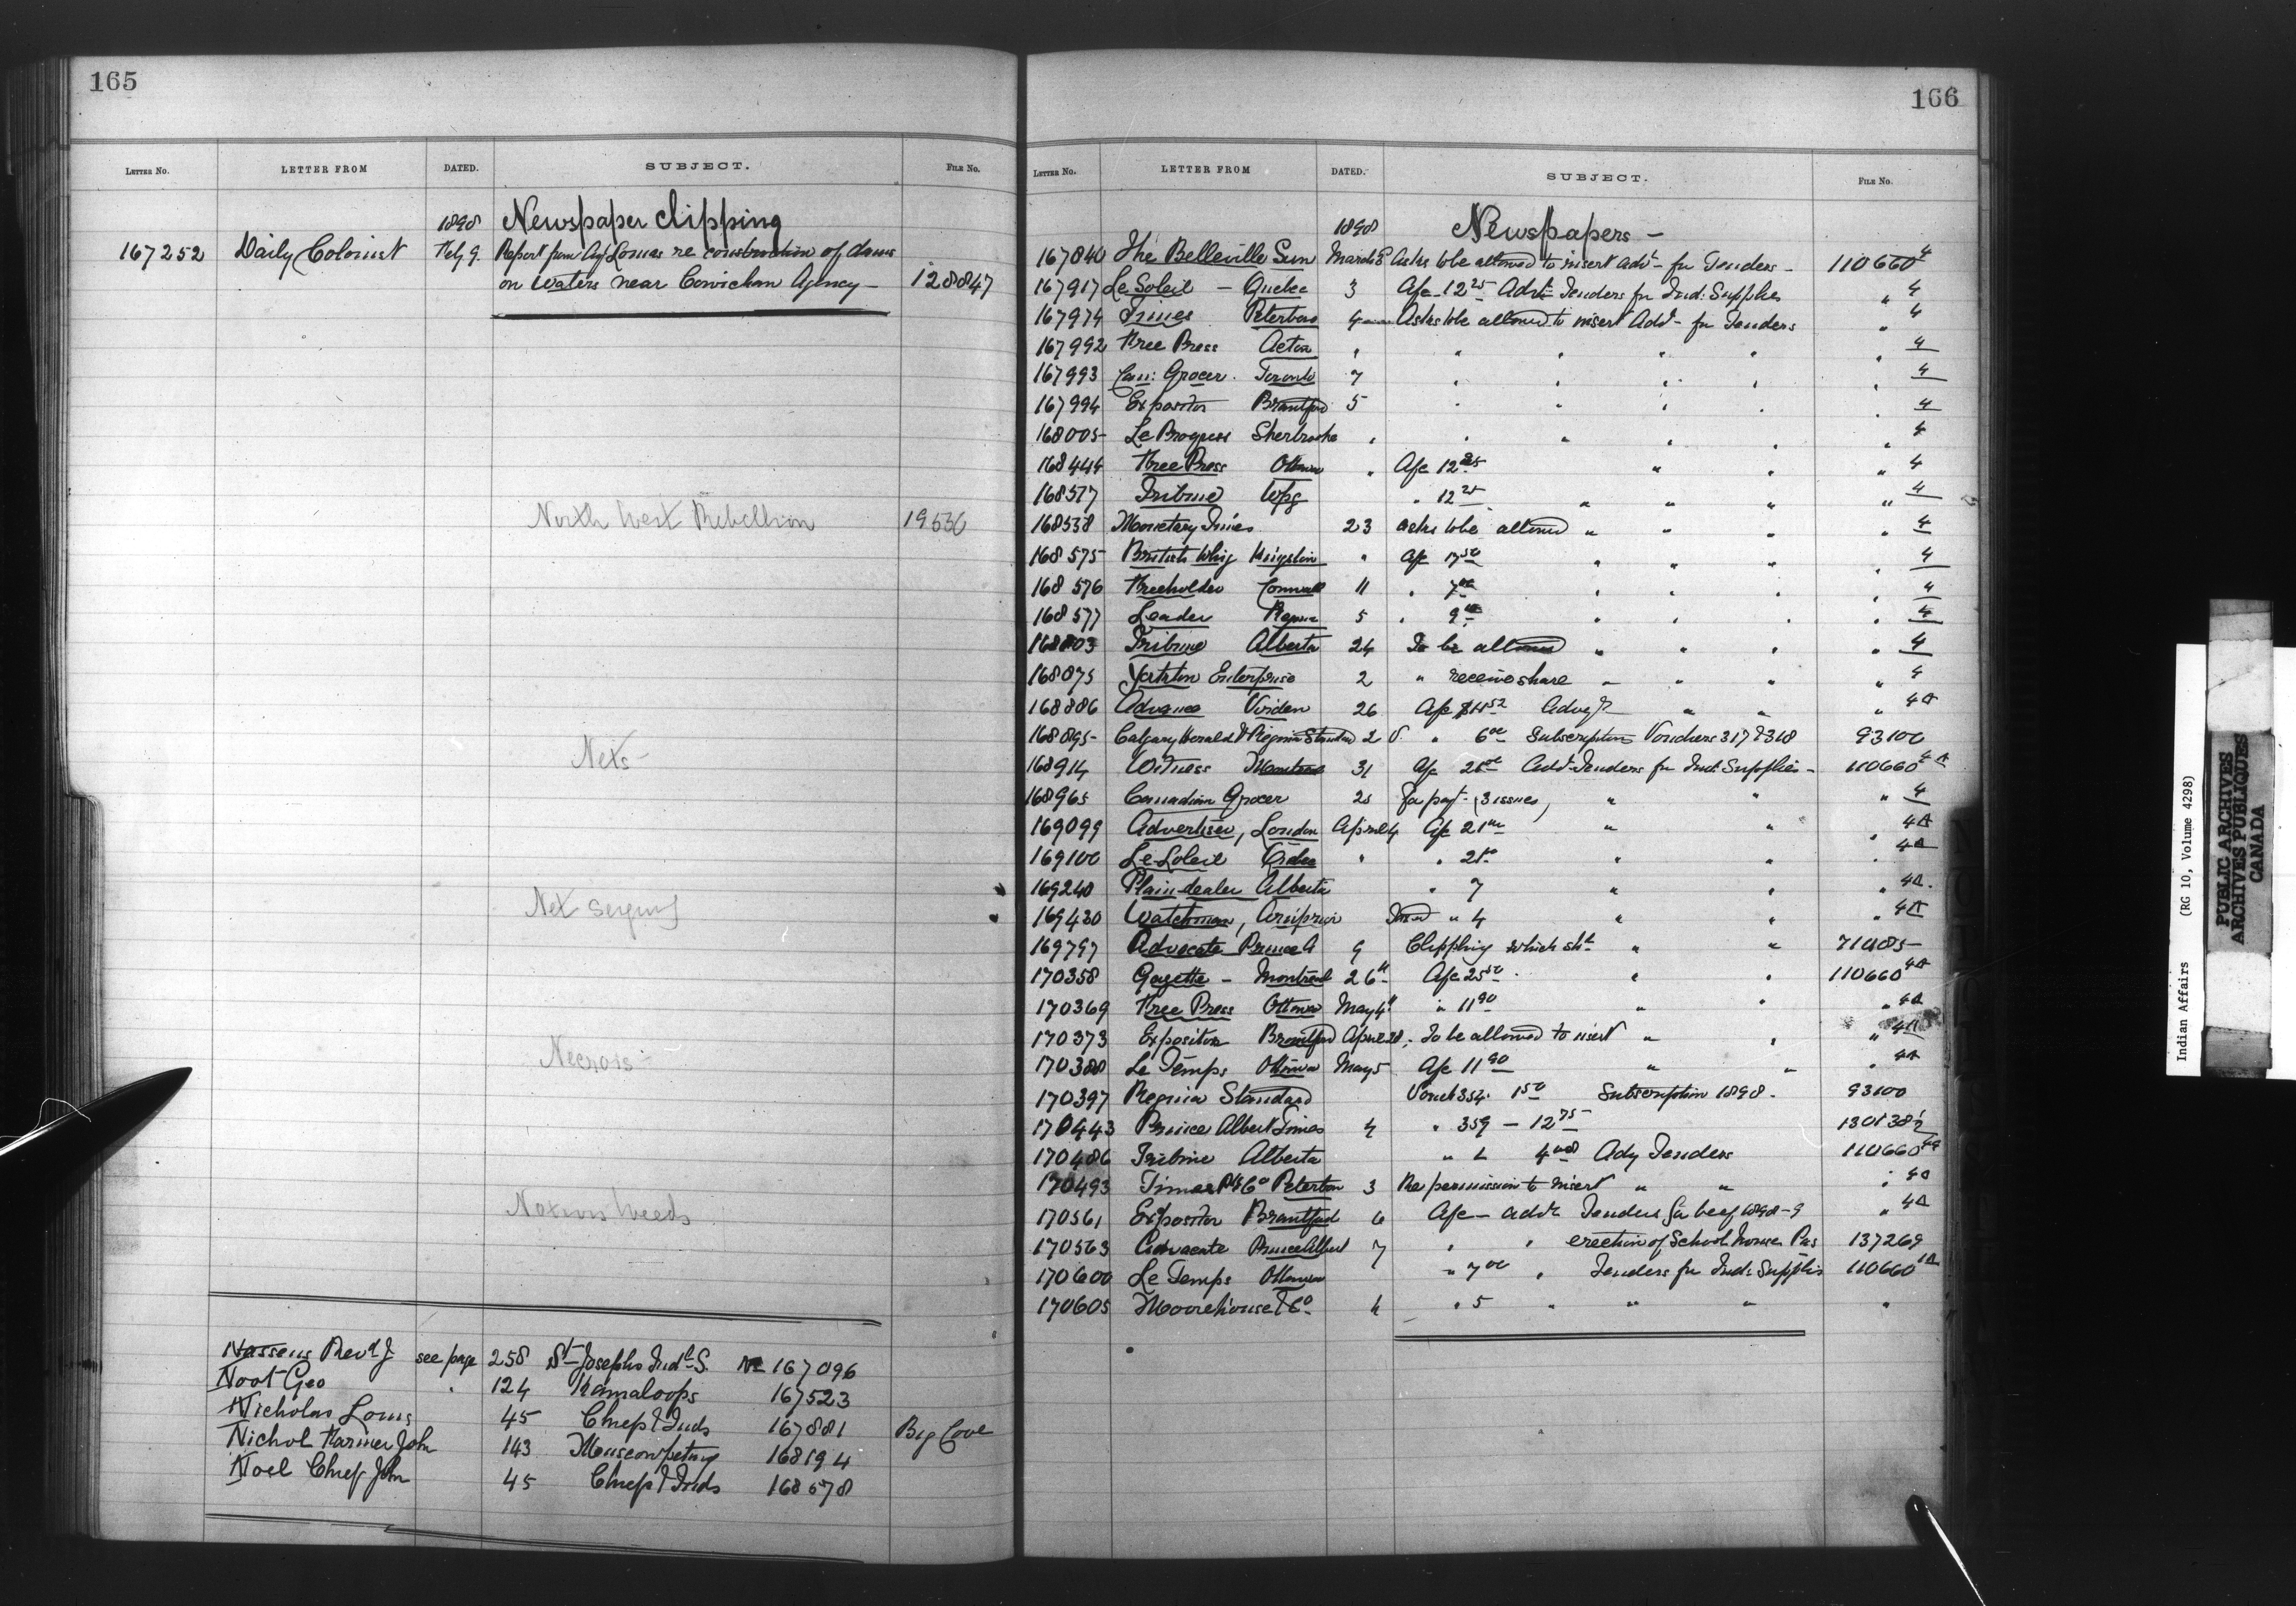 165
LETTER NO. LETTER FROM DATED. SUBJECT. FILE NO.
1898 Newspaper Clipping
167252 Daily Colonist Feby 9. Report from Agt Lomas re construction of dams
on Waters near Cowichan Agency - 128847
North West Rebellion 19536
Nets
Net
Noxious Weeds
Nassens Revd J see page 258 St Josephs Indl S. No 167096
Noot Geo " 124 Kamaloops 167523
Nicholas Louis 45 Chiefs & Inds 167881 Big Cove
Nichol Farmer John 143 Muscowpetung 168194
Noel Chief John 45 Chiefs & Inds 168578
166
LETTER NO. LETTER FROM DATED. SUBJECT. FILE NO.
1898 Newspapers -
167840 The Belleville Sun March 8 Asks to be allowed to insert Advt - for Tenders - 110660 4
167917 Le Soleil - Quebec 3 A/c 12 25 Advt Tenders for Ind: Supplies " 4
167974 Times Peterboro 4 Asks to be allowed to insert Advt - for Tenders " 4
167992 Free Press Acton " " " " " " 4
167993 Can: Grocer. Toronto 7 " " " " " 4
167994 Expositor Brantford 5 " " " " " 4
168005 Le Progress Sherbrooke " " " " " " 4
168444 Free Press Ottawa " A/c 12 25 " " " 4
168517 Tribune Wpg " 12 25 " " " " 4
168538 Monetary Times 23 asks to be allowed " " " " 4
168575 British Whig Kingston " A/c 17 50 " " " " 4
168576 Freeholder Cornwall 11 " 7 00 " " " " 4
168577 Leader Regina 5 " 9 " " " " 4
168803 Tribune Alberta 24 To be allowed " " " " 4
168875 Yorkton Enterprise 2 " receive share " " " " 4
168886 Advance Virden 26 A/c Advg " " " 4A
168895 Calgary Herald & Regina Standard 2 V. " 6 00 Subscription Vouchers 317 & 318 93100
168914 Witness Montreal 31 A/c 21 00 Advt Tenders for Ind: Supplies - 110660 4A
168965 Canadian Grocer 25 For payt - (3 issues) " " " 4
169099 Advertiser, London April 4 A/c 21 00 " " " 4A
169100 Le Soleil Quebec " " 21 00 " " " 4A
169240 Plain dealer Alberta " 7 " " " 4A
169430 Watchman, Arnprior " 4 " " " 4A
169797 Advocate Prince A 9 Clipping which sht " " 71485
170358 Gazette - Montreal 26th A/c 25 50 " " 110660 4A
170369 Free Press Ottawa May 4th " 11 90 " " " 4A
170373 Expositor Brantford April 28 To be allowed to insert " " " 4A
170380 Le Temps Ottawa May 5 A/c 11 90 " " " 4A
170397 Regina Standard Vouch 354. 1 50 Subscription 1898. 93100
170443 Prince Albert Times 4 " 359 - 12 75
170486 Tribune Alberta " 4 00 Adv Tenders 110660
170493 Times Peterboro 3 Re permission to insert " " " 4A
170561 Expositor Brantford 6 A/c - advt Tenders for beef 1898-9 " 4A
170563 Advocate Prince Albert 7 " " erection of School house Pas 137269
170600 Le Temps Ottawa " 7 00 " Tenders for Ind: Supplies 110660
170605 Moorehouse & Co 4 " 5 " " " "
Indian Affairs (RG 10, Volume 4298)
PUBLIC ARCHIVES
ARCHIVES PUBLIQUES
CANADA